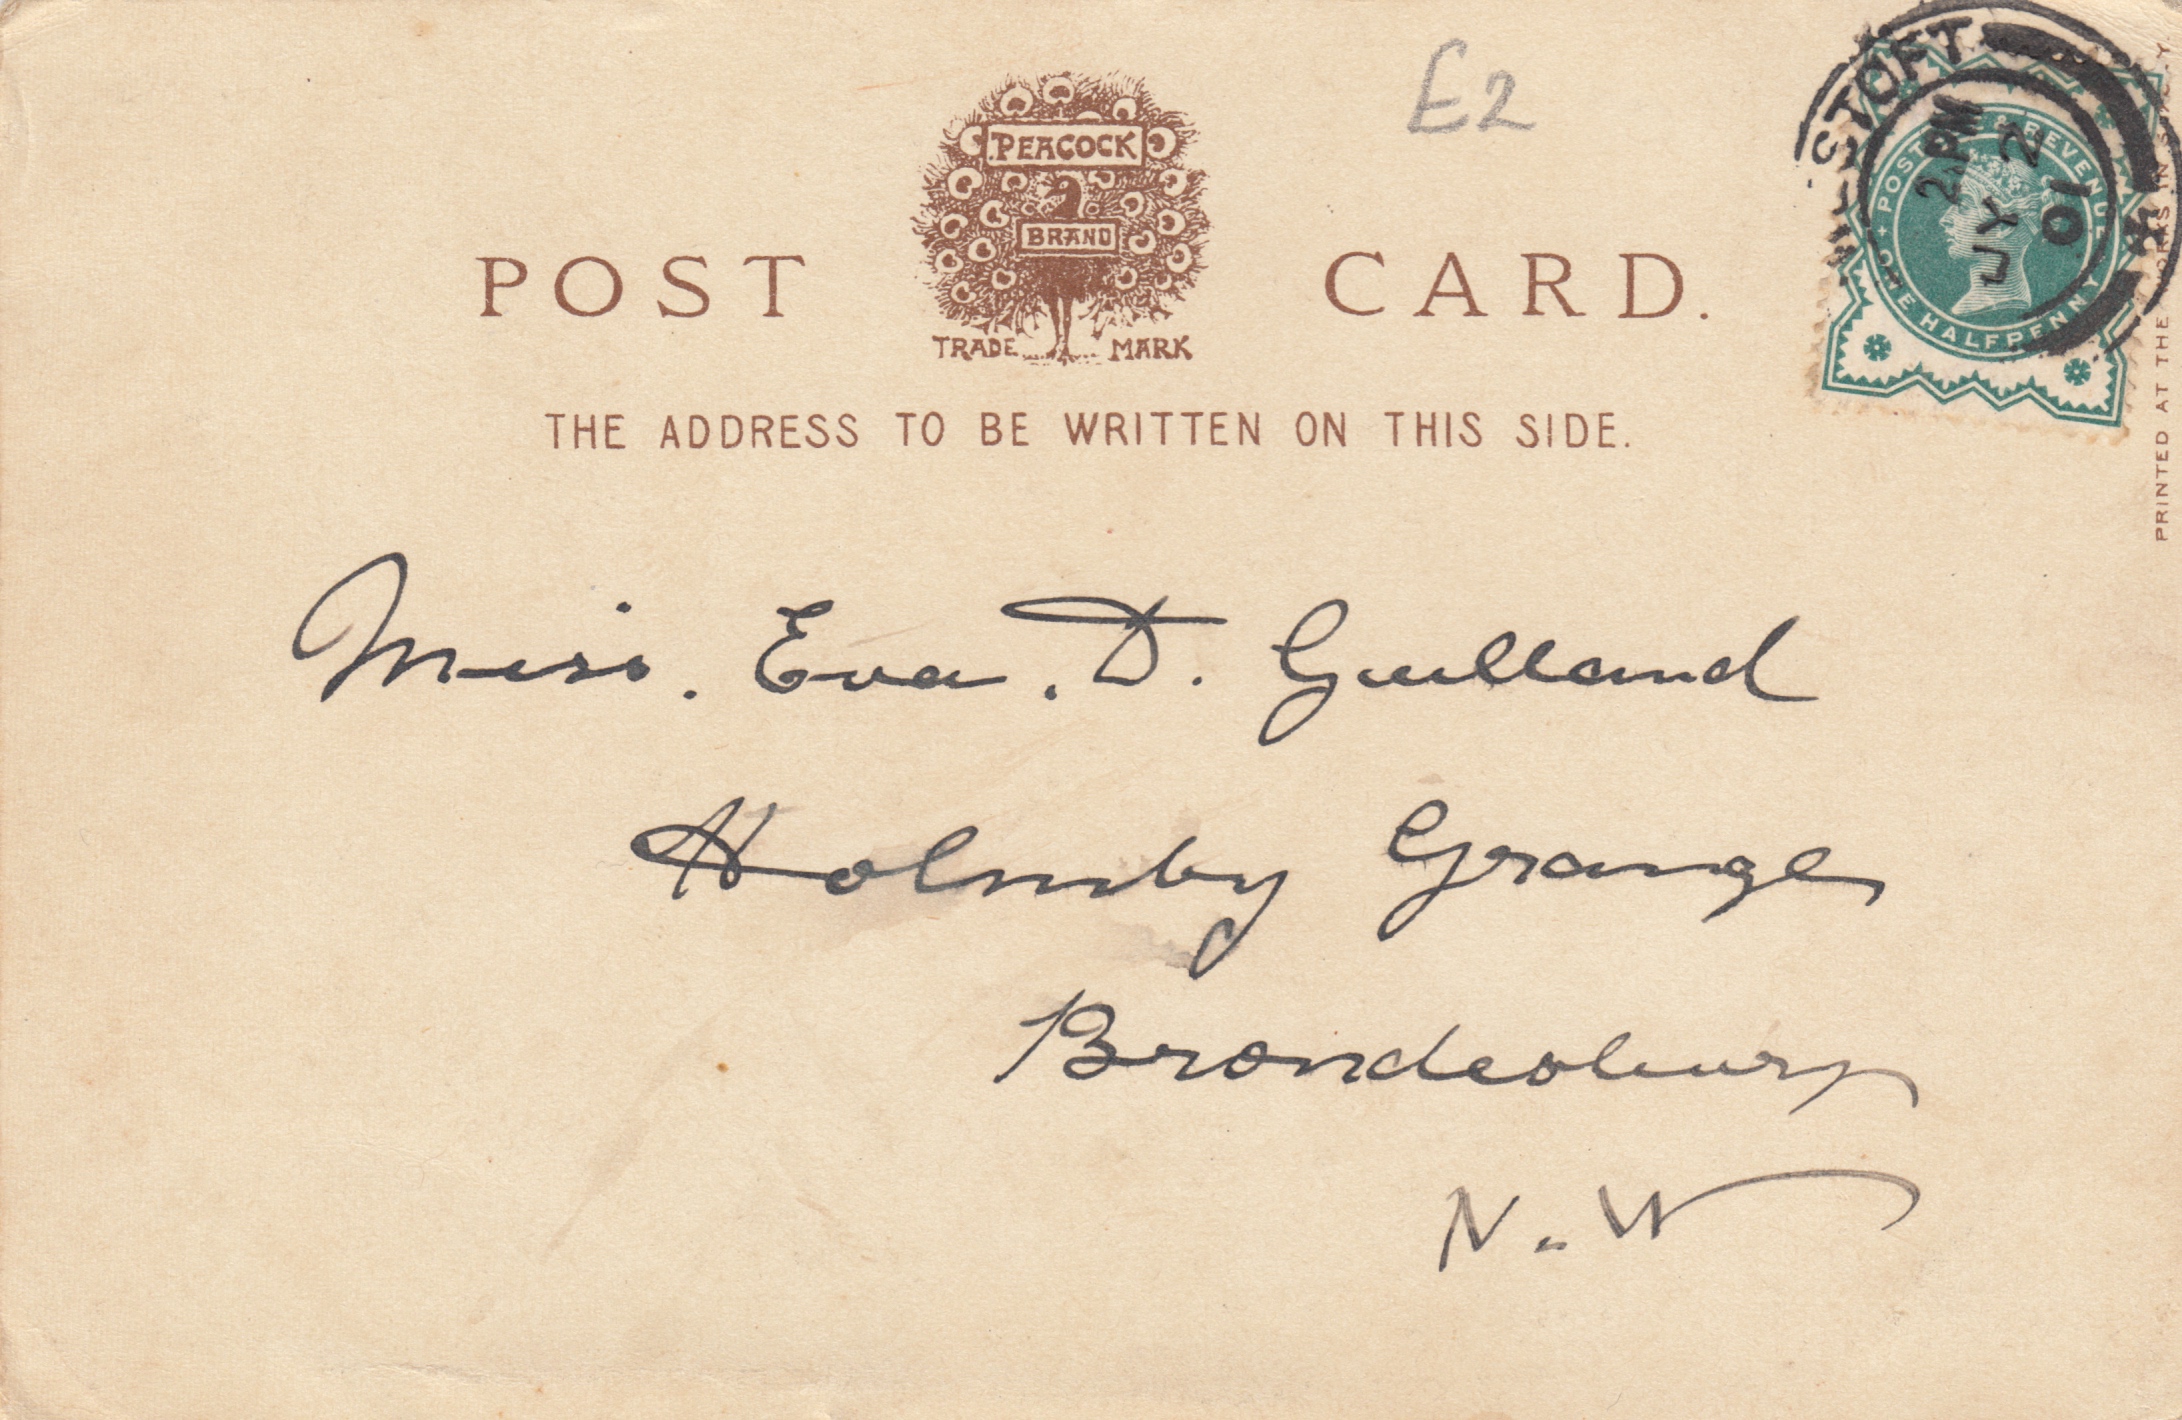 £2
PEACOCK
BRAND
TRADE MARK
POST CARD.
THE ADDRESS TO BE WRITTEN ON THIS SIDE.
STOFT
2.PM
JY 2
01
POSTAGE & REVENUE
ONE HALFPENNY
PRINTED AT THE WORKS IN
Miss. Eva. D. Gulland
Holmby Grange
Brondesbury
N.W